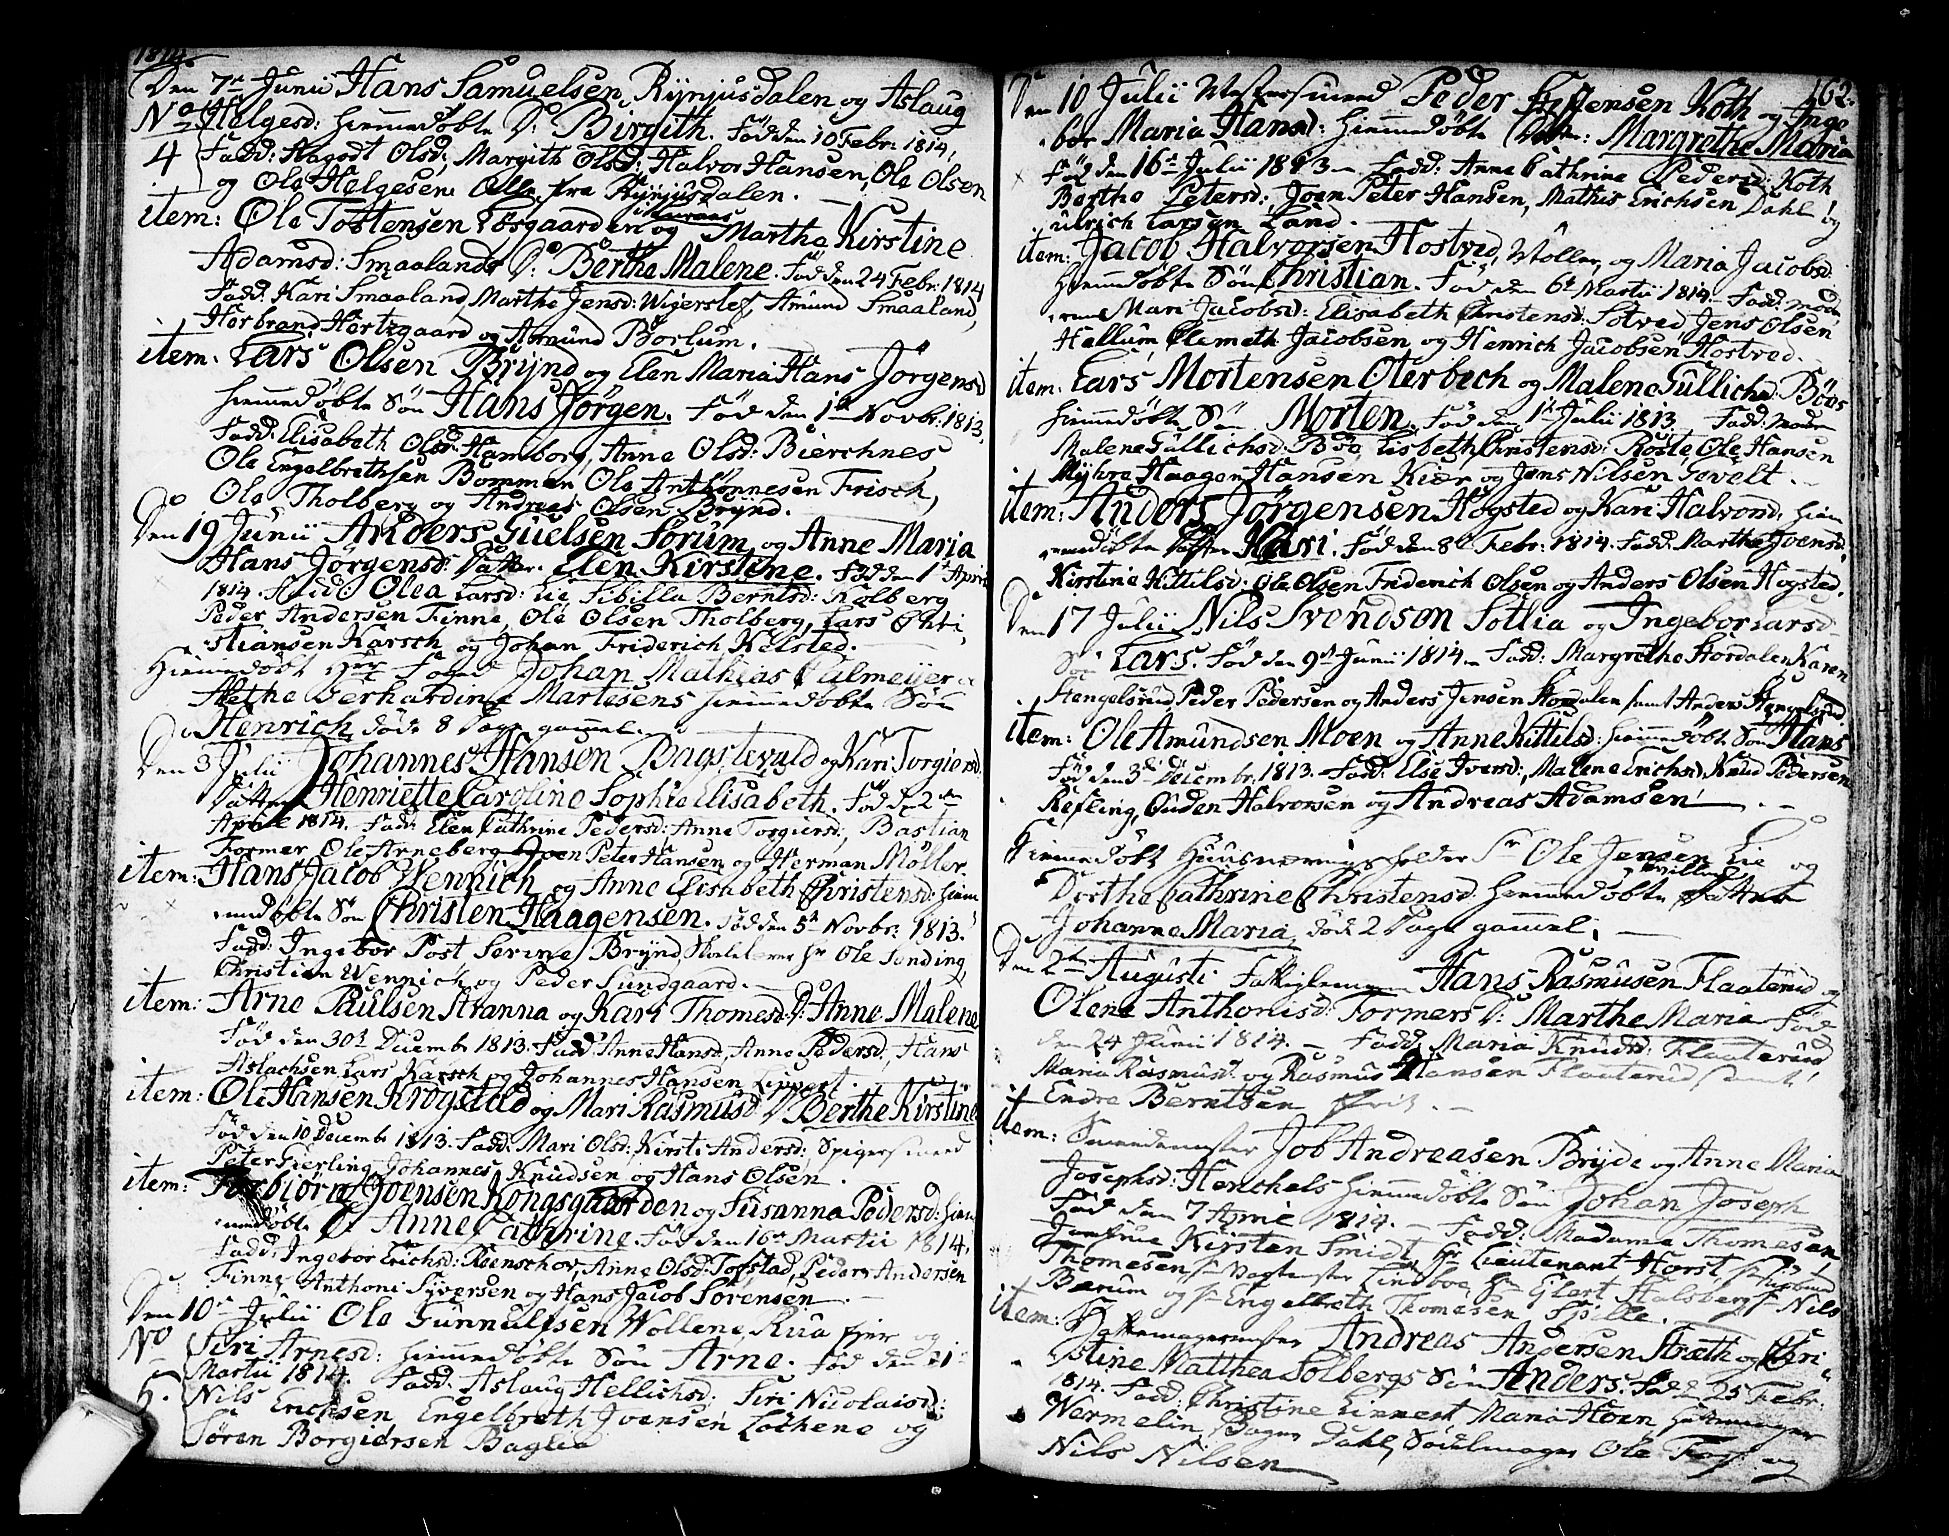 1814.
Den 7de Junii Hans Samuelsen Rÿnjusdalen og Aslaug
No Helgesd: hiemmedøbte D: Birgith. Fød den 10 Febr: 1814,
4 Fadd: Aagodt Olsd: Margith Olsd: Halvor Hansen, Ole Olsen
og Ole Helgesen Alle fra Rÿnjusdalen.
item: Ole Tostensen Losgaarden og Marthe Kirstine
Adamsd: Smaalands D: Berthe Malene. Fød den 24 Febr: 1814
Fadd: Kari Smaaland, Marthe Jensd: Wigerslef, Amund Smaaland,
Herbrand Hertzgaard og Amund Borlum.
item. Lars Olsen Brÿnd og Elen Maria Hans Jørgensd
hiemmedøbte Søn Hans Jørgen. Fød den 1te Novbr: 1813.
Fadd: Elisabeth Olsd: Hamborg, Anne Olsd: Bierchnes
Ole Engelbrethsen Bomman Ole Anthonnesen Frisch,
Ole Tholberg og Andreas Olsen Brÿnd.
Den 19 Junii Anders Guulsen Sorum og Anne Maria
Hans Jørgensd: Datter. Elen Kirstine. Fød den 1te April
1814. Fadd: Olea Larsd: Lie Sibilla Berntsd: Kolberg
Peder Andersen Finne, Ole Olsen Tholberg, Lars Chri-
stiansen Karsch og Johan Friderich Kelsted.
Hiemmedøbt Johan Mathias Palmeÿer
Gerhardine Martesens hiemmedøbte Søn
Henrich, døde 8 Dage gammel.
Den 3 Julii Johannes Hansen Bagstevold og Kari Torgiersd
Datter Henriette Caroline Sophie Elisabeth. Fød den 2den
April 1814. Fadd: Elen Cathrine Pedersd: Anne Torgiersd:, Bastian
Former Ole Arneberg Joen Peter Hansen og Herman Møller.
item: Hans Jacob Wennich og Anne Elisabeth Christensd: hiem-
medøbte Søn Christen Haagensen. Fød den 5te Novbr: 1813.
Fadd: Ingebor Post Serine Brÿnd, Ole Sonding,
Christian Wennich og Peder Sundgaard.
item: Arne Paulsen Aranna og Kari Thomesd: D: Anne Malene
Fød den 30te Decembr 1813. Fadd: Anne Hansd, Anne Pedersd, Hans
Aslachsen Lars Karsch og Johannes Hansen Lippert.
item: Ole Hansen Krogstad og Mari Rasmusd D: Berthe Kirstine
Fød den 10 Decembr 1813. Fadd: Mari Olsd: Kirsti Andersd: Spigersmeed
Peter Gierling, Johannes Knudsen og Hans Olsen.
item: Torbiørn Joensen Kongsgaarden og Susanna Pedersd: hiem-
medøbte D: Anne Cathrine. Fød den 16de Martii 1814.
Fadd: Ingebor Erichsd: Rosenschov, Anne Olsd: Tofstad, Peder Andersen
Finne, Anthoni Sÿversen og Hans Jacob Sørensen.
Den 10de Julii Ole Gunnulfsen Wollene Rua og
No Siri Arnesd: hiemmedøbte Søn Arne. Fød den 21
5. Martii 1814. Fadd: Aslaug Hellichsd: Siri Nicolaisd:
Nils Ericksen, Engelbreth Jvensen Lochene og
Søren Borgiersen Baglia
162.
Den 10 Julii Mestersmeed Peder Koth og Inge-
bor Maria Hansd: hiemmedøbte Datter: Margrethe Maria
Fød den 16de Julii 1813. Fadd: Anne Cathrine Pedersd: Koth
Berthe Petersd:, Joen Peter Hansen, Mathis Erichsen Dahl og
Ulrich Larsen Land.
item: Jacob Halvorsen Hostved, Møller, og Maria Jacobsd:
hiemmedøbte Søn Christian. Fød den 6te Martii 1814. Fadd: Mode-
rens Mari Jacobsd: Elisabeth Christensd: Sotved Jens Olsen
Hellum, Clemeth Jacobsen og Henrich Jacobsen Hostved.
item: Lars Mortensen Oterbech og Malene Gullichsd: Böes
hiemmedøbte Søn Morten. Fød den 1te Julii 1813. Fadd: Moder
Malene Gullichsd: Böe, Lisbeth Christensd: Roste, Ole Hansen
Mÿhre Haagen Hansen Kier og Jens Nilsen Gevelt.
item: Anders Jörgensen Hogsted og Kari Halvorsd: hiem-
medøbte Datter Kari. Fød den 8de Febr: 1814. Fadd: Marthe Joensd,
Kirstine Kittilsd: Ole Olsen Friderich Olsen og Anders Olsen Hogsted.
Den 17 Julii Nils Svendson Sotlia og Ingebor Larsd
Søn Lars. Fød den 9de Junii 1814. Fadd: Margrethe Stordalen, Karen
Hengelsrud, Peder Pedersen og Anders Jensen Stordalen samt Anders Hengelsrud.
item: Ole Amundsen Moen og Anne Kittilsd: hiemmedøbte Søn Hans
Fød den 3die Decembr: 1813. Fadd: Else Jversd:, Malene Erichsd, Knud Pedersen
Refling, Guden Halvorsen og Andreas Adamsen.
Hiemmedøbt Huusnæringsholder Sr Ole Jensen Lie og
Dorthe Cathrine Christensd: hiemmedøbte tvilling Datter
Johanne Maria, døde 2 Dage gammel.
Den 2den Augusti Hans Rasmusen Flaaterud og
Olene Anthonisd: Formers D: Marthe Maria Fød
den 24 Junii 1814. Fadd: Maria Knudsd: Flaaterud
Maria Rasmusd. og Rasmus Hansen Flaaterud samt
Endre Berntsen
item: Smedemester Job Andreasen Brÿde og Anne Maria
Josephsd: Henchels hiemmedøbte Søn Johan Joseph
Fød den 7 April 1814. Fadd: Madame Thomesen,
Jomfrue Kirsten Smidt, Hr Lieutenant Horst
Thomesen, Lindboe, Glert Stalsberg, Sr Nils
Bærum og Sr Engelbreth Thomesen Spille.
item: Hattemagermester Andreas Andersen Stræth og Chri-
stine Matthea Solbergs Søn Anders. Fød d 25 Febr:
1814. Fadd: Christine Linnert, Maria Hoen,
Wermelin, Bager Dahl, Sadelmager Ole Fos og
Nils Nilsen